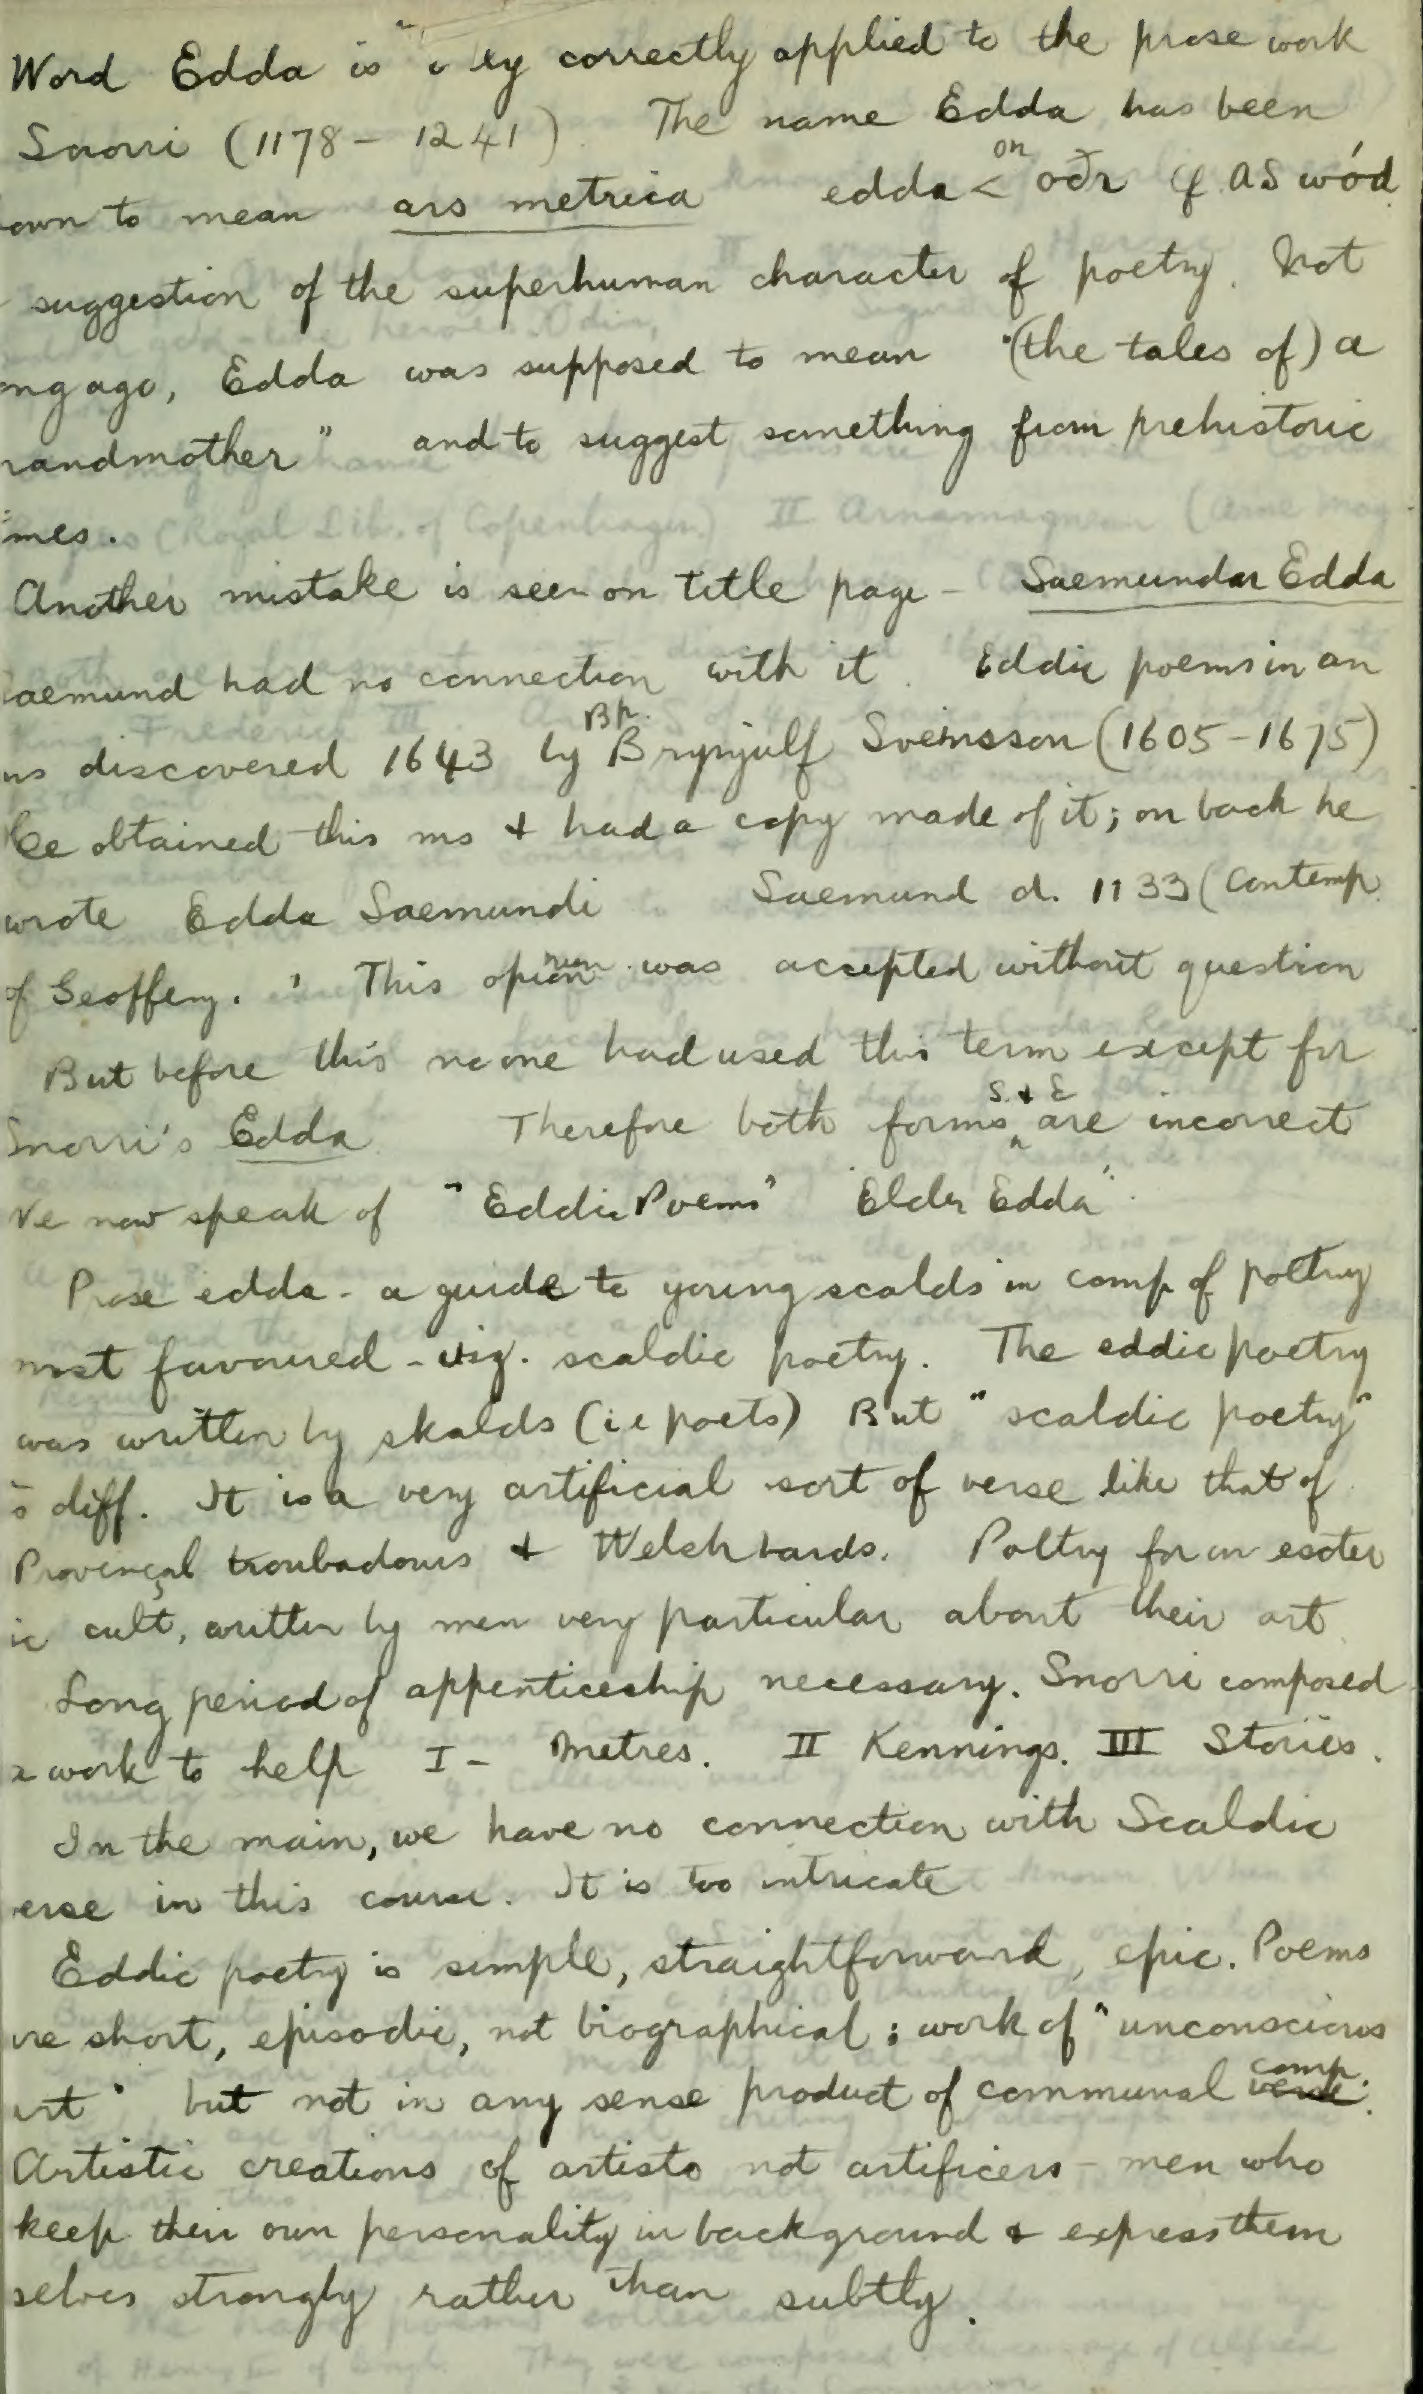 Word Edda is correctly applied to the prose work
Snorri (1178 - 1241). The name Edda has been
own to mean ars metrica edda < ON oðr cf AS wód
suggestion of the superhuman character of poetry. Not
ng ago, Edda was supposed to mean "(the tales of) a
randmother" and to suggest something from prehistoric
mes.
Another mistake is seen on title page - Saemundar Edda
aemund had no connection with it. Eddic poems in an
ms discovered 1643 by Bp. Brynjulf Sveinsson (1605-1675)
He obtained this ms & had a copy made of it; on back he
wrote Edda Saemundi Saemund d. 1133 (Contemp.
of Geoffery. This opinion was accepted without question
But before this no one had used this term except for
Snorri's Edda. Therefore both forms S. & E are incorrect
We now speak of "Eddic Poems" "Elder Edda".
Prose edda - a guide to young scalds in comp of poetry
most favoured - viz. scaldic poetry. The eddic poetry
was written by skalds (i.e poets) But "scaldic poetry"
is diff. It is a very artificial sort of verse like that of
Provençal troubadours & Welch bards. Poetry for an esoter
ic cult, written by men very particular about their art.
Long period of appenticeship necessary. Snorri composed
a work to help I - Metres. II Kennings. III Stories.
In the main, we have no connection with Scaldic
erse in this course. It is too intricate
Eddic poetry is simple, straightforward, epic. Poems
are short, episodic, not biographical; work of "unconscious
art" but not in any sense product of communal verse comp.
Artistic creations of artists not artificers - men who
keep their own personality in background & express them
selves strongly rather than subtly.